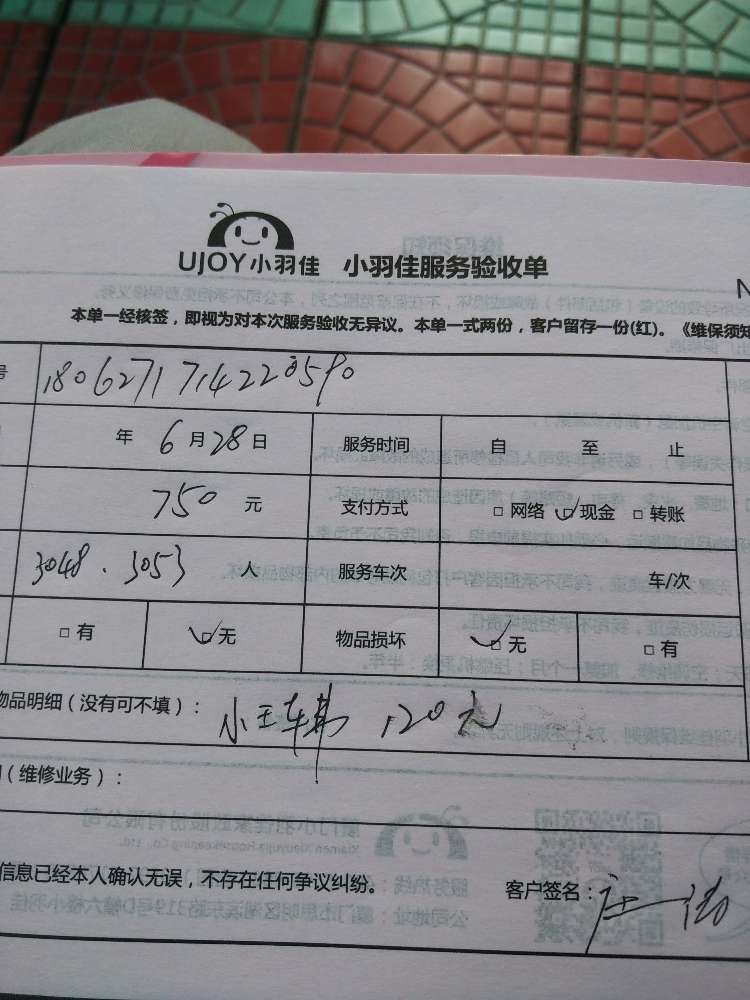 UJOY小羽佳 小羽佳服务验收单
本单一经核签，即视为对本次服务验收无异议。本单一式两份，客户留存一份(红)。《维保须知
号 1806271714220590
年 6月28日 服务时间 自 至 止
750 元 支付方式 □网络 ☑现金 □转账
3048.3053 人 服务车次 车/次
□有 ☑无 物品损坏 ☑无 □有
物品明细（没有可不填）： 120元
（维修业务）：
信息已经本人确认无误，不存在任何争议纠纷。 客户签名：